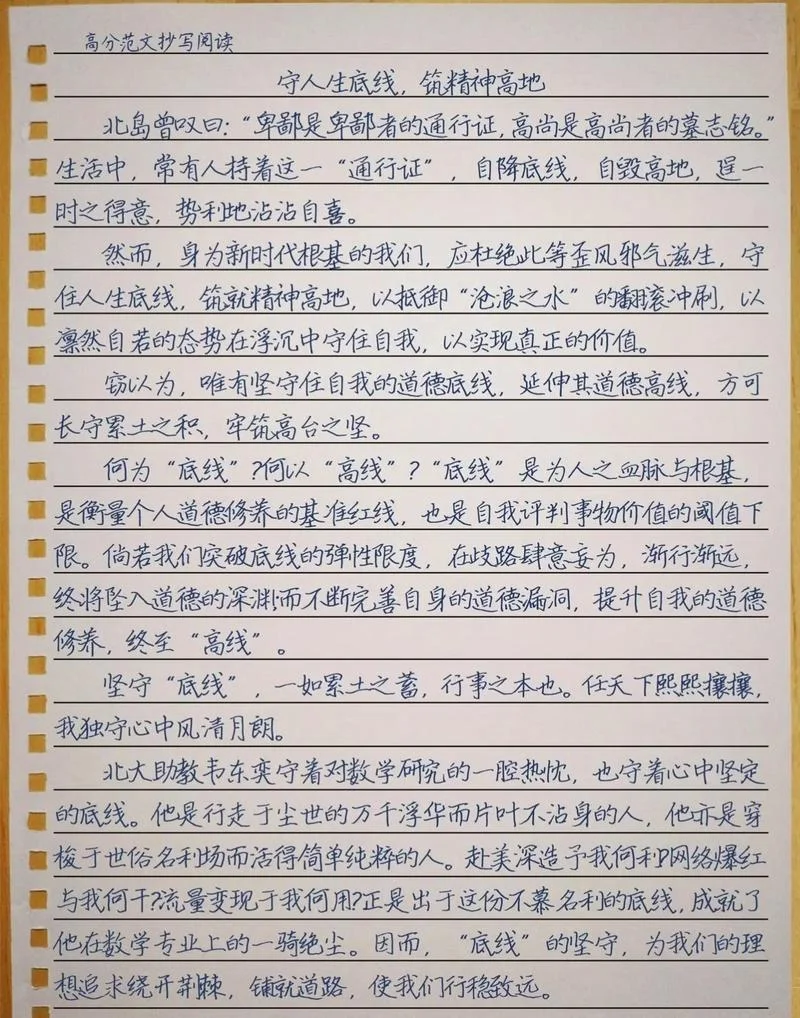 高分范文抄写阅读
守人生底线，筑精神高地
北岛曾叹曰：“卑鄙是卑鄙者的通行证，高尚是高尚者的墓志铭。”
生活中，常有人持着这一“通行证”，自降底线，自毁高地，逞一
时之得意，势利地沾沾自喜。
然而，身为新时代根基的我们，应杜绝此等歪风邪气滋生，守
住人生底线，筑就精神高地，以抵御“沧浪之水”的翻滚冲刷，以
凛然自若的态势在浮沉中守住自我，以实现真正的价值。
窃以为，唯有坚守住自我的道德底线，延伸其道德高线，方可
长守累土之积，牢筑高台之坚。
何为“底线”？何以“高线”？“底线”是为人之血脉与根基，
是衡量个人道德修养的基准红线，也是自我评判事物价值的阈值下
限。倘若我们突破底线的弹性限度，在歧路肆意妄为，渐行渐远，
终将坠入道德的深渊；而不断完善自身的道德漏洞，提升自我的道德
修养，终至“高线”。
坚守“底线”，一如累土之蓄，行事之本也。任天下熙熙攘攘，
我独守心中风清月朗。
北大助教韦东奕守着对数学研究的一腔热忱，也守着心中坚定
的底线。他是行走于尘世的万千浮华而片叶不沾身的人，他亦是穿
梭于世俗名利场而活得简单纯粹的人。赴美深造予我何利？网络爆红
与我何干？流量变现于我何用？正是出于这份不慕名利的底线，成就了
他在数学专业上的一骑绝尘。因而，“底线”的坚守，为我们的理
想追求绕开荆棘，铺就道路，使我们行稳致远。